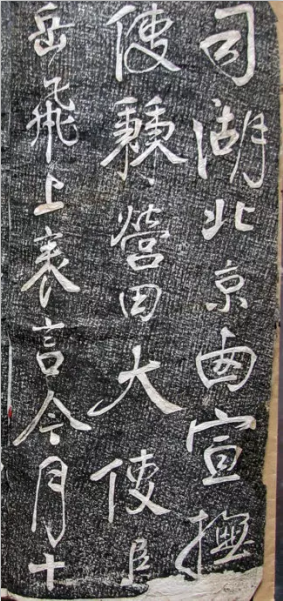 司湖北京西宣撫
使兼營田大使臣
岳飛上表言今月十